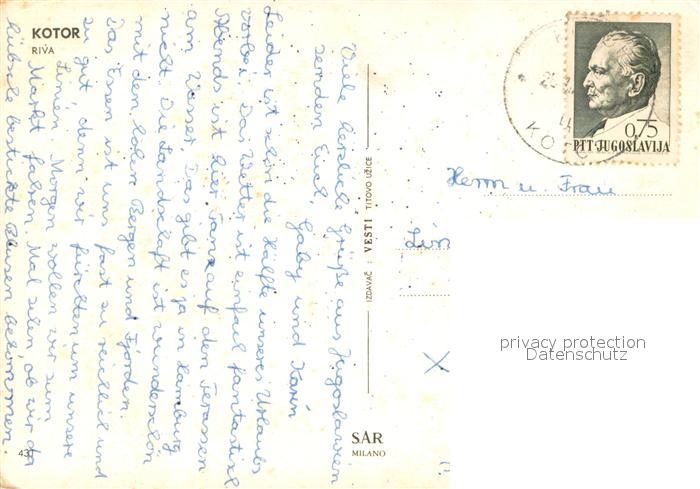 KOTOR
RIVA
Viele herzliche Grüße aus Jugoslawien
senden Euch Gaby und Karin
Leider ist schon die Hälfte unseres Urlaubs
vorbei. Das Wetter ist einfach fantastisch
Abends ist hier Tanz auf den Terassen
am Wasser. Das gibt es ja in Hamburg
nicht. Die Landschaft ist wunderschön
mit den hohen Bergen und Fjorden.
Das Essen ist uns fast zu reichlich und
zu gut, denn wir fürchten um unsere
Linien. Morgen wollen wir zum
Markt fahren. Mal sehen, ob wir da
hübsche bestickte Blusen bekommen.
431
IZDAVAČ VESTI TITOVO UŽICE
SAR
MILANO
0,75
PTT JUGOSLAVIJA
KOTOR
Herrn u. Frau
privacy protection
Datenschutz